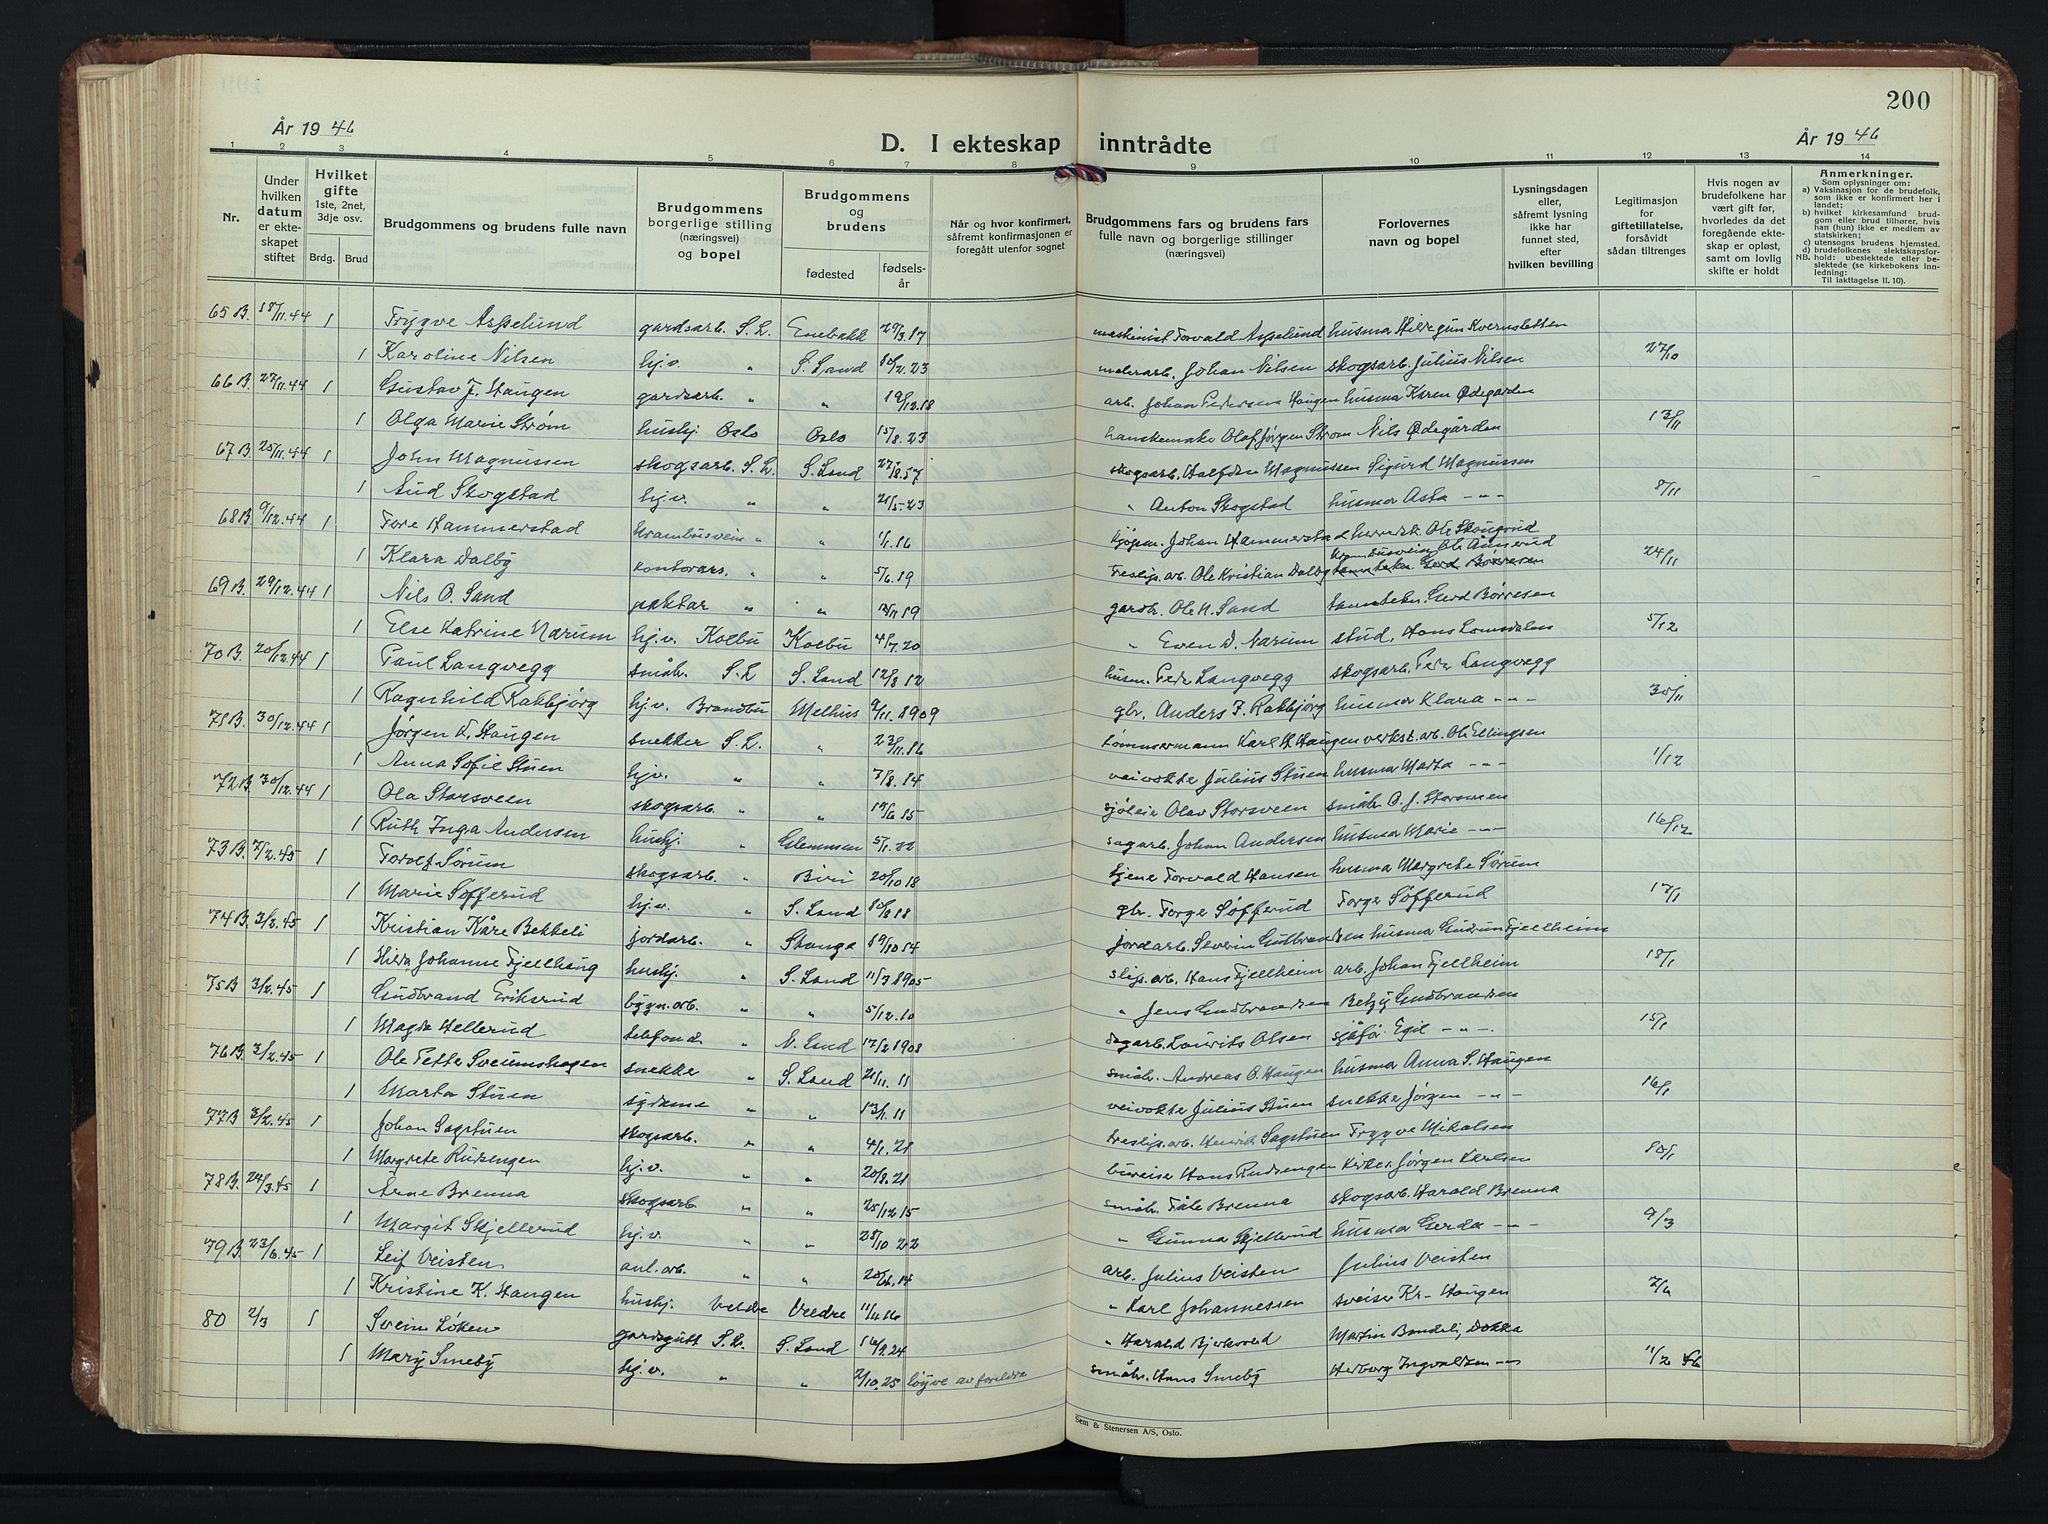 200
År 19 46
D. I ekteskap inntrådte
År 19 46
1 2 3 4 5 6 7 8 9 10 11 12 13 14
Nr.
Under hvilken datum er ekteskapet stiftet
Hvilket gifte 1ste, 2net, 3dje osv.
Brdg. Brud
Brudgommens og brudens fulle navn
Brudgommens borgerlige stilling (næringsvei) og bopel
Brudgommens og brudens
fødested
fødsels-år
Når og hvor konfirmert, såfremt konfirmasjonen er foregått utenfor sognet
Brudgommens fars og brudens fars fulle navn og borgerlige stillinger (næringsvei)
Forlovernes navn og bopel
Lysningsdagen eller, såfremt lysning ikke har funnet sted, efter hvilken bevilling
Legitimasjon for giftetillatelse, forsåvidt sådan tiltrenges
Hvis nogen av brudefolkene har vært gift før, hvorledes da det foregående ekteskap er opløst, samt om lovlig skifte er holdt
Anmerkninger.
Som oplysninger om:
a) Vaksinasjon for de brudefolk, som ikke er konfirmert her i landet;
b) hvilket kirkesamfund brudgom eller brud tilhører, hvis han (hun) ikke er medlem av statskirken;
c) utensogns brudens hjemsted.
d) brudefolkenes slektskapsforhold: ubeslektede eller beslektede (se kirkebokens innledning: Til iakttagelse II. 10).
NB.
65B. 18/11.44 1 Trygve Asselund gardsarb. S.L. Enebakk 29/3.17 maskinist Torvald Asselund husmor Hildegun Kvernsletten
1 Karoline Nilsen hj.v. " S. Land 10/2.23 Johan Nilsen skogsarb. Julius Nilsen 27/10
66B. 27/11.44 1 Gustav J. Haugen gardsarb. " " 19/12.18 arb. Johan Pedersen Haugen husmor Karen Ødegarden
1 Olga Marie Strøm hushj. Oslo Oslo 15/8.23 hanskemaker Olaf Jørgen Strøm Nils Ødegården 13/11
67B. 25/11.44 1 John Magnussen skogsarb. S.L. S. Land skogsarb. Halfdan Magnussen Sigurd Magnussen
1 Aud Skogstad hj.v. " " 21/5-23 " Anton Skogstad husmor Asta -"- 8/11
68B. 9/12.44 1 Tore Hammerstad Krambusvein " " 1/1.16 kjøpm. Johan Hammerstad herredsk. Ole Skaugrud
Krambusvein Ole Aamerud
1 Klara Dalby kontorass. " " 5/6.19 Treslip.arb. Ole Kristian Dalby tanntekn. Gerd Børresen 24/11
69B. 29/12.44 1 Nils O. Sand paktar " " 12/11 19 gardbr. Ole N. Sand tanntekn. Gerd Børresen
1 Else Katrine Narum hj.v. Kolbu Kolbu 4/7.20 " Even D. Narum stud. Hans Lomsdalen 5/12
70B. 20/12.44 1 Paul Langvegg småbr. S.L S. Land 12/3 12 husm. Peder Langvegg skogsarb. Peder Langvegg
1 Ragnhild Rakbjørg hj.v. Brandbu Melhus 9/11.1909 gbr. Anders F. Rakbjørg husmor Klara -"- 30/11
71B. 30/12.44 1 Jørgen K. Haugen snekker S.L. " 23/11.86 tømmermann Karl H. Haugen verkst.arb. Ole Ellingsen
1 Anna Sofie Stuen hj.v. " " 7/8.14 veivokter Julius Stuen husmor Marta -"- 1/12
72B. 30/12.44 1 Ola Storsveen skogsarb " " 19/6 15 Olav Storsveen småbr O. J. Storsveen
1 Ruth Inga Andersen hushj. " Glemmen 5/1.22 sagarb. Johan Andersen husmor Marie -"- 16/12
73B. 7/2.45 1 Torolf Sørum skogsarb. " Biri 20/10 18 Torvald Hansen husmor Margrete Sørum
1 Marie Søfferud hj.v. " S. Land 10/8 18 gbr. Torger Søfferud Torger Søfferud 17/1
74B. 3/2.45 1 Kristian Kåre Bekkeli jordarb. " Stange 19/10 14 jordarb. Severin Gulbrandsen husmor Gudrun Fjellheim
1 Hilda Johanne Fjellhaug hushj. " S. Land 11/3 1905 slip.arb. Hans Fjellheim arb. Johan Fjellheim 18/1
75B 3/2.45 1 Gudbrand Eriksrud bygn.arb. " " 5/12.10 " Jens Gudbrandsen Betzy Gudbrandsen
1 Magda Hellerud telefond. " N. Land 17/2 1908 Sagarb. Lauritz Olsen sjåfør Egil -"-. 15/1
76B. 3/2.45 1 Ole Petter Sveumshagen snekker " S. Land 21/11.11 småbr. Andreas O. Haugen husmor Anna S. Haugen
1 Marta Stuen sydame " " 13/1.11 veivokter Julius Stuen snekker Jørgen -"- 16/1
77B 3/2.45 1 Johan Sagstuen skogsarb. " " 4/1.21 treslip.arb. Henrik Sagstuen Trygve Mikalsen
1 Margrete Rudsengen hj.v. " " 20/8.21 bureiser Hans Rudsengen Jørgen Karlsen 10/1
78B. 24/3.45 1 Arne Brenna skogsarb " " 25/12 15 småbr. Påle Brenna skogsarb. Harald Brenna
1 Margit Skjellerud hj.v. " " 28/10 22 " Gunnar Skjellerud husmor Gerda -"- 9/3
79B. 23/6.45 1 Leif Veisten anl.arb. " " arb. Julius Veisten Julius Veisten
1 Kristine K. Haugen hushj. Veldre Veldre 11/4 16 " Karl Johannessen sveiser Kr- Haugen 7/6
80 2/3 1 Svein Løken gardsgutt S.L. S. Land 16/9.24 " Harald Bjerkerud Martin Bondeli, Dokka
1 Mary Smeby hj.v. " " 2/10.25 løyve av foreldra småbr. Hans Smeby Herborg Ingvaldsen -"- 11/2 46
Sem & Stenersen A/S, Oslo.